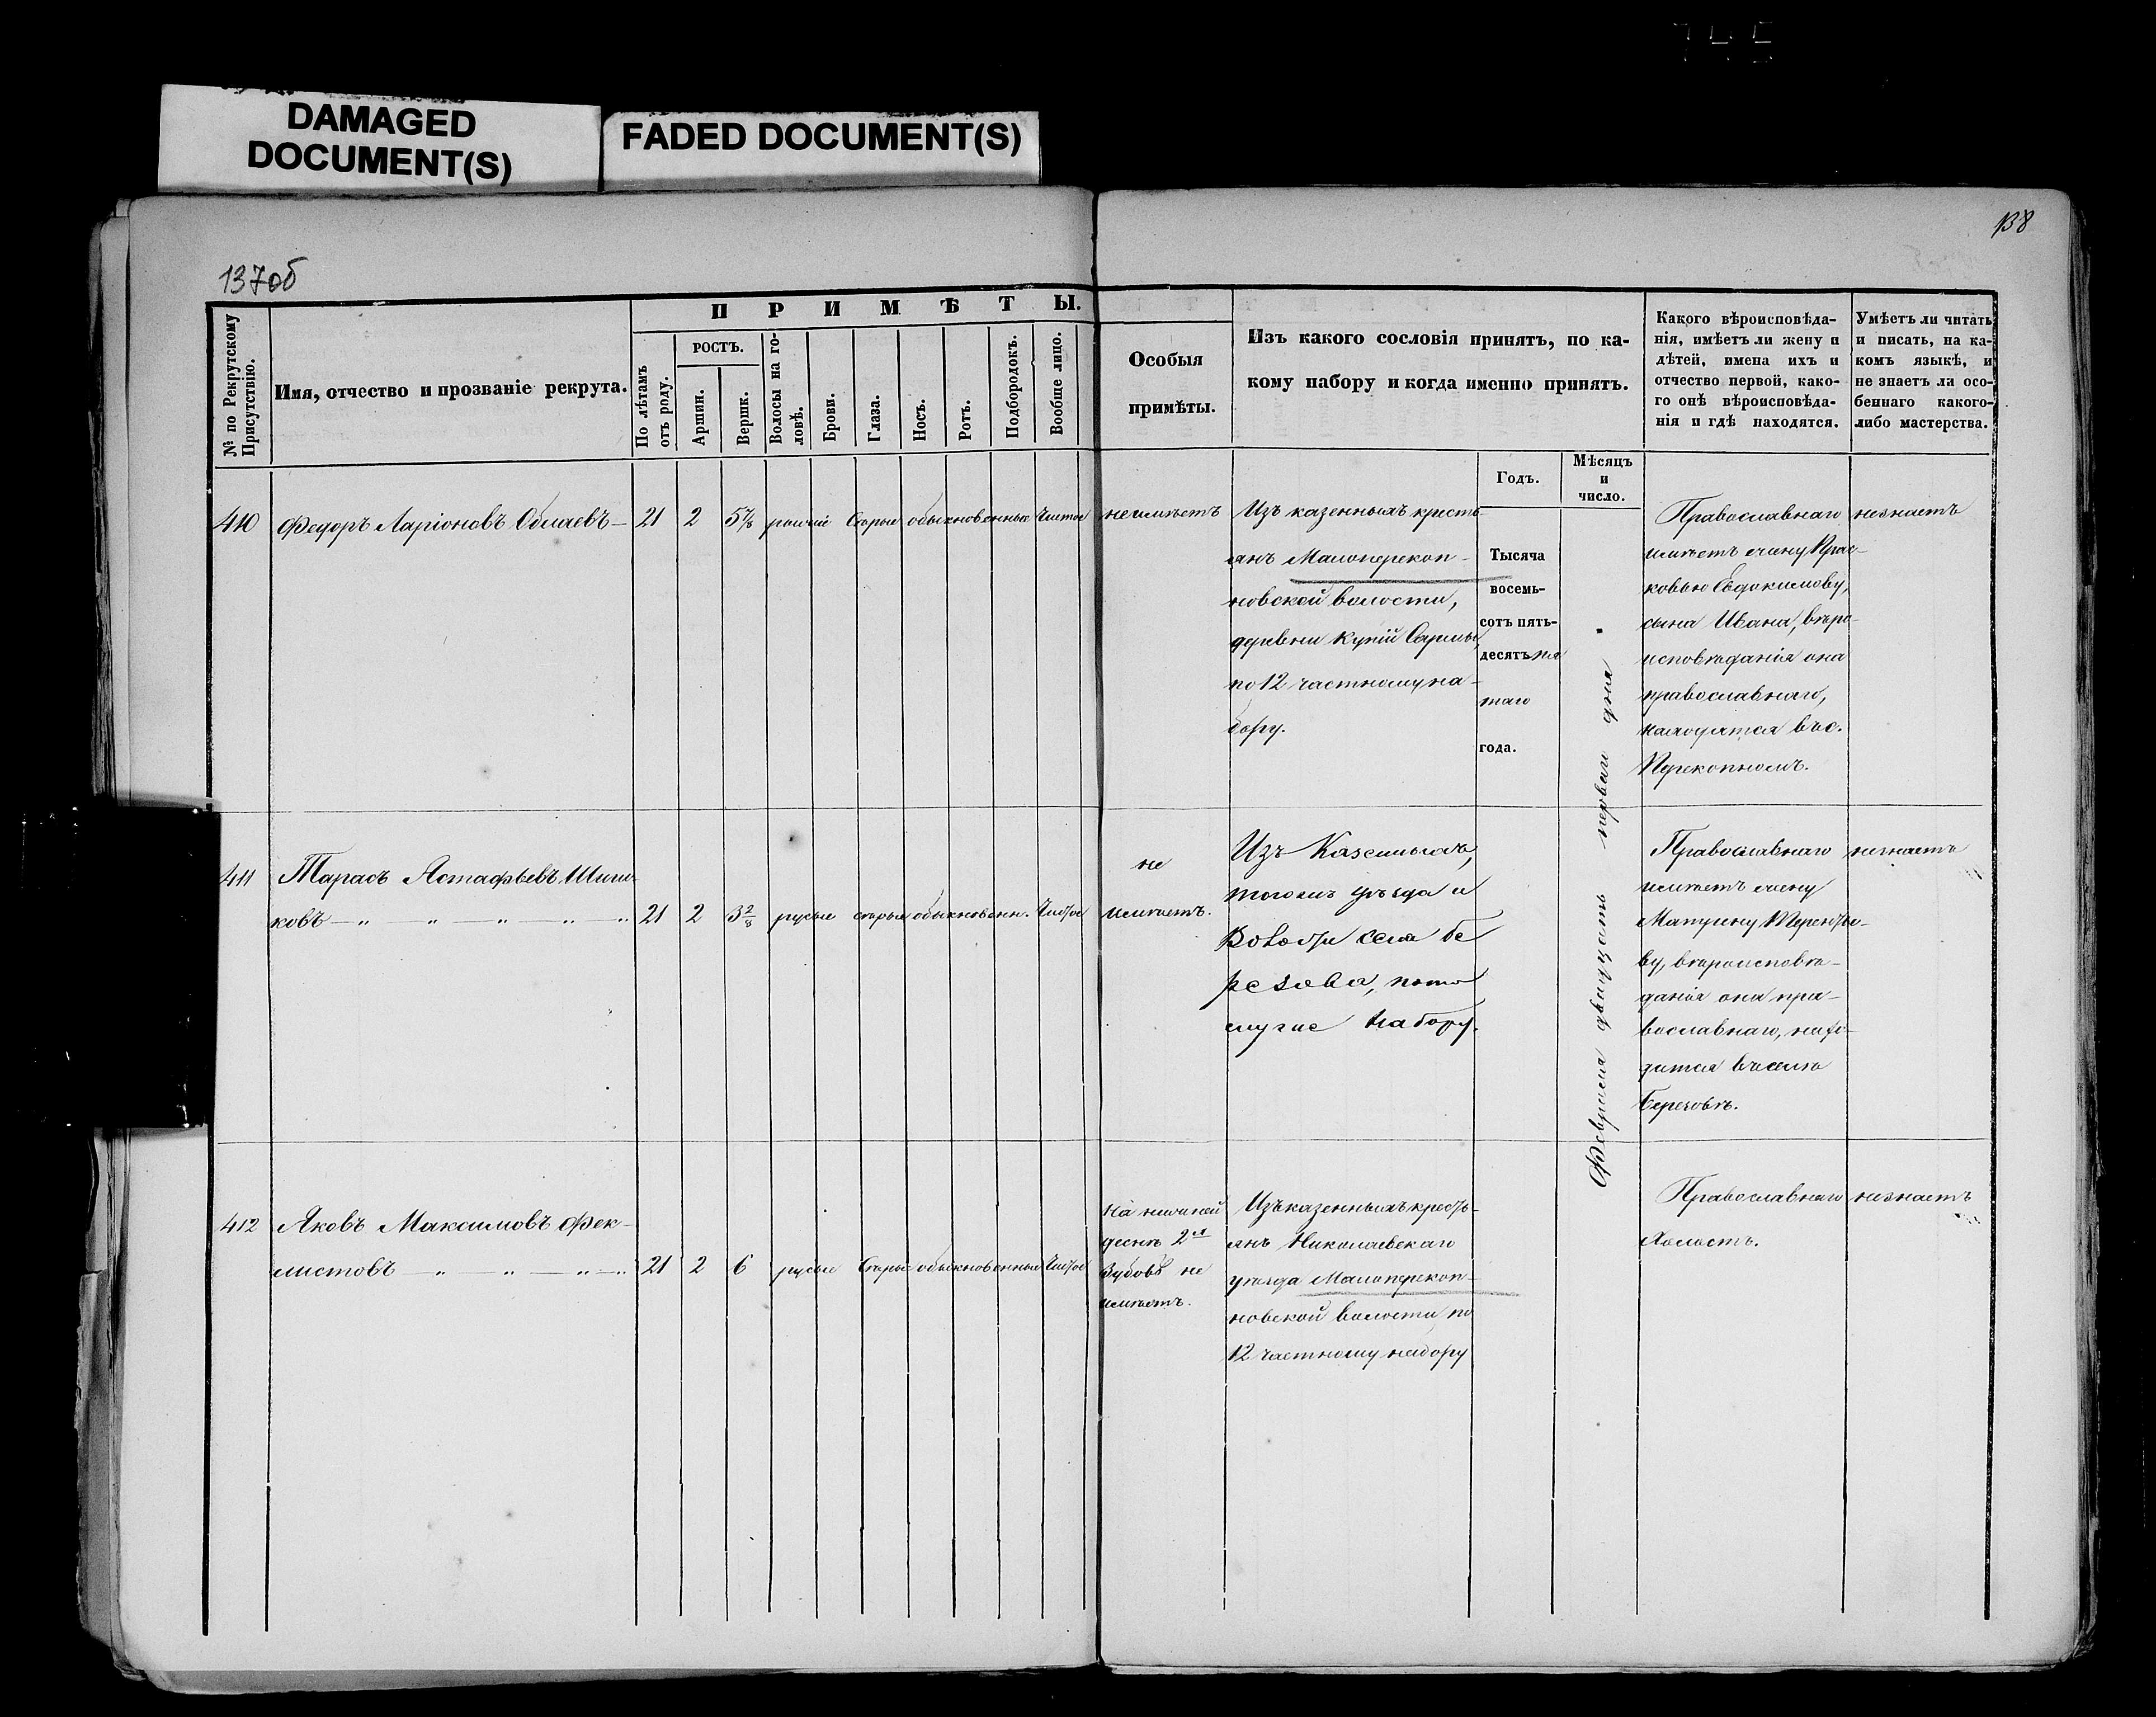 DAMAGED
DOCUMENT(S)
FADED DOCUMENT(S)
138
137об
№ по Рекрутскому
Присутствію.
Имя, отчество и прозваніе рекрута.
ПРИМѢТЫ.
По лѣтамъ
отъ роду.
РОСТЪ.
Аршин.
Вершк.
Волосы на го-
ловѣ.
Брови.
Глаза.
Носъ.
Ротъ.
Подбородокъ.
Вообще лицо.
Особыя
примѣты.
Изъ какого сословія принятъ, по ка-
кому набору и когда именно принятъ.
Годъ.
Мѣсяцъ
и
число.
Какого вѣроисповѣда-
нія, имѣетъ ли жену и
дѣтей, имена ихъ и
отчество первой, како-
го онѣ вѣроисповѣда-
нія и гдѣ находятся.
Умѣетъ ли читать
и писать, на ка-
комъ языкѣ, и
не знаетъ ли осо-
беннаго какого-
либо мастерства.
410 Федоръ Ларіоновъ 21 2 5⅞ Сѣрые обыкновенные Чистое неимѣетъ
Изъ казенныхъ кресть-
янъ Малоперекоп-
новской волости,
деревни
по 12 частному на-
бору.
Тысяча
восемь-
сотъ пять-
десятъ пя
таго
года.
Февраля двадцать перваго дня
Православнаго
имѣетъ жену Прас-
ковью Евдокимову,
сына Ивана, вѣро-
исповѣданія она
православнаго,
находятся въ с.
Перекопномъ.
незнаетъ
411 Тарасъ Астафьевъ Шиши-
ковъ 21 2 3 2/8 русые сѣрые обыкновенн. Чистое
не
имѣетъ.
Изъ Казенныхъ,
тогожъ уѣзда и
Волости села Бе
резова, потому
же Набору.
Православнаго
имѣетъ жену
Матрену Терентье-
ву, вѣроисповѣ-
данія она пра-
вославнаго, нахо-
дится въ селѣ
Березовѣ.
незнаетъ
412 Яковъ Максимовъ Фек-
листовъ 21 2 6 русые Сѣрые обыкновенные Чистое
На нижней
деснѣ 2хъ
Зубовъ не
имѣетъ.
Изъ казенныхъ кресть-
янъ Николаевскаго
уѣзда Малоперекоп-
новской волости, по
12 частному набору
Православнаго
Холостъ.
незнаетъ